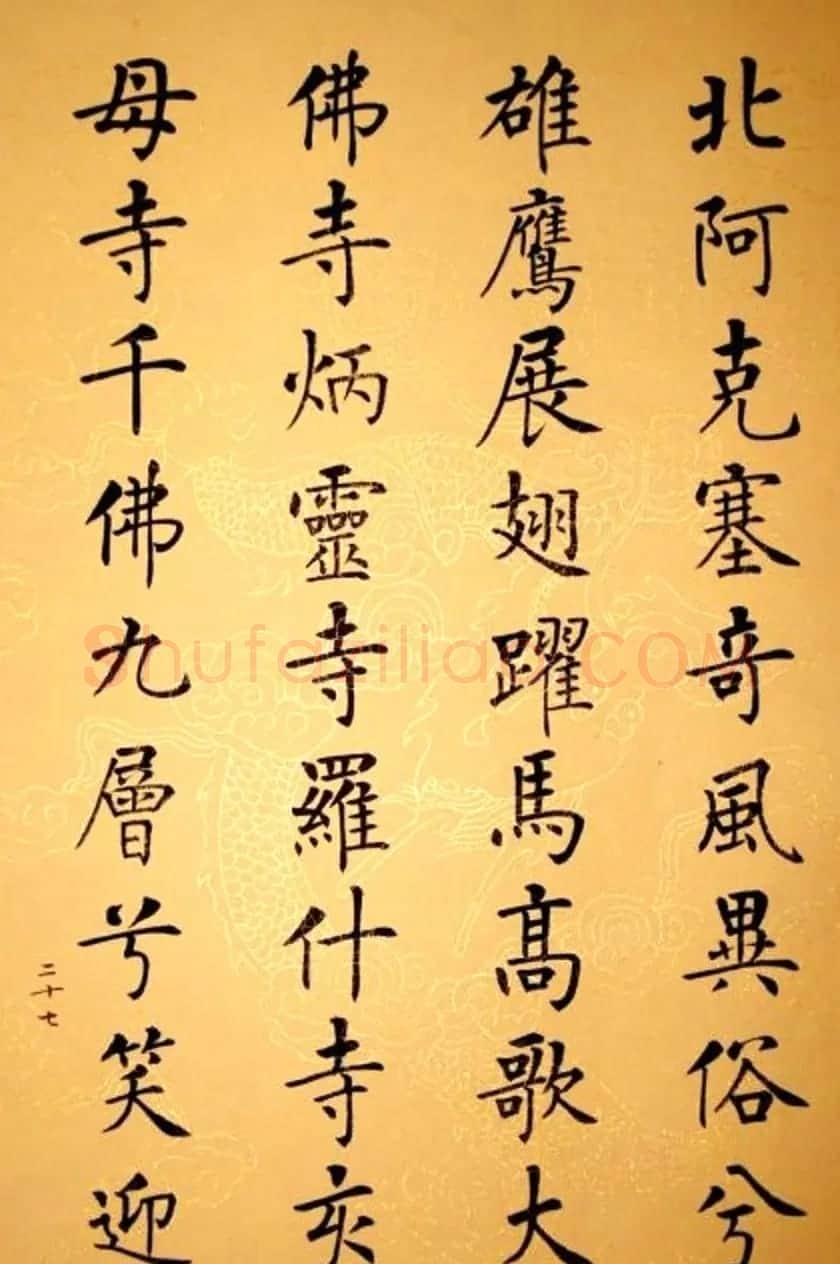 北阿克塞奇風異俗兮
雄鷹展翅躍馬高歌大
佛寺炳靈寺羅什寺亥
母寺千佛九層兮笑迎
二十七
Shufa
.COM